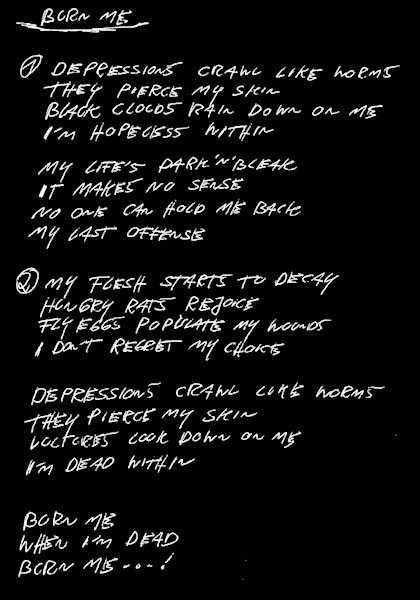 BURN ME
① DEPRESSIONS CRAWL LIKE WORMS
THEY PIERCE MY SKIN
BLACK CLOUDS RAIN DOWN ON ME
I'M HOPELESS WITHIN
MY LIFE'S DARK 'N' BLEAK
IT MAKES NO SENSE
NO ONE CAN HOLD ME BACK
MY LAST OFFENSE
② MY FLESH STARTS TO DECAY
HUNGRY RATS REJOICE
FLY EGGS POPULATE MY WOUNDS
I DON'T REGRET MY CHOICE
DEPRESSIONS CRAWL LIKE WORMS
THEY PIERCE MY SKIN
VULTURES LOOK DOWN ON ME
I'M DEAD WITHIN
BURN ME
WHEN I'M DEAD
BURN ME....!